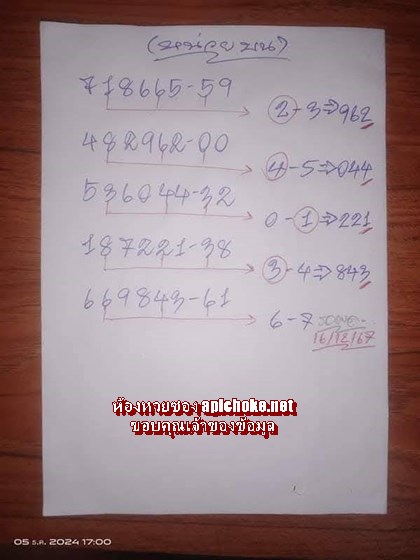 (หน่วยบน)
718665-59
2-3⇒962
482962-00
4-5⇒044
536044-32
0-1⇒221
187221-38
3-4⇒843
669843-61
6-7
16/12/67
ห้องหวยซอง apichoke.net
ขอบคุณเจ้าของข้อมูล
05 ธ.ค. 2024 17:00